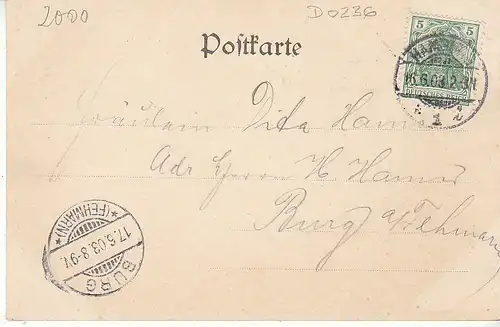 2000
D0236
Postkarte
5 5
DEUTSCHES REICH
16.6.03
1
Fräulein Dita
Adr Herrn H. Hamer
Burg a/Fehmarn
*(FEHMARN)*
17.6.03.8-9V.
BURG